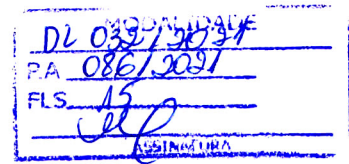 MODALIDADE
DL 032/2021
P.A 086/2021
FLS 15
ASSINATURA